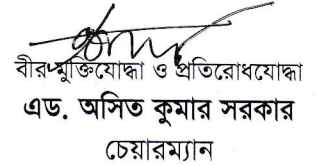 বীর মুক্তিযোদ্ধা ও প্রতিরোধযোদ্ধা
এড. অসিত কুমার সরকার
চেয়ারম্যান